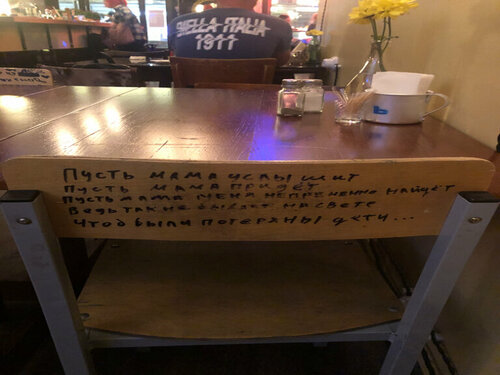 BIELLA ITALIA
1911
Пусть мама услышит
Пусть мама придёт
Пусть мама меня непременно найдёт
Ведь так не бывает на свете
Чтоб были потеряны дети...